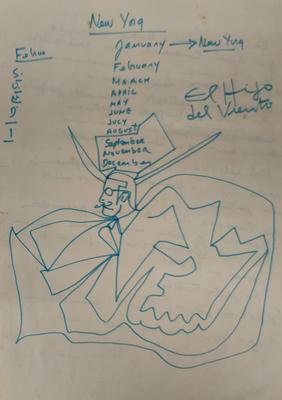 New Yng
January → New Yng
Febuary
MAACH
APRIL
MAY
JUNE
JUCY
AUGUST
September
November
December
El Hijo
del Viento